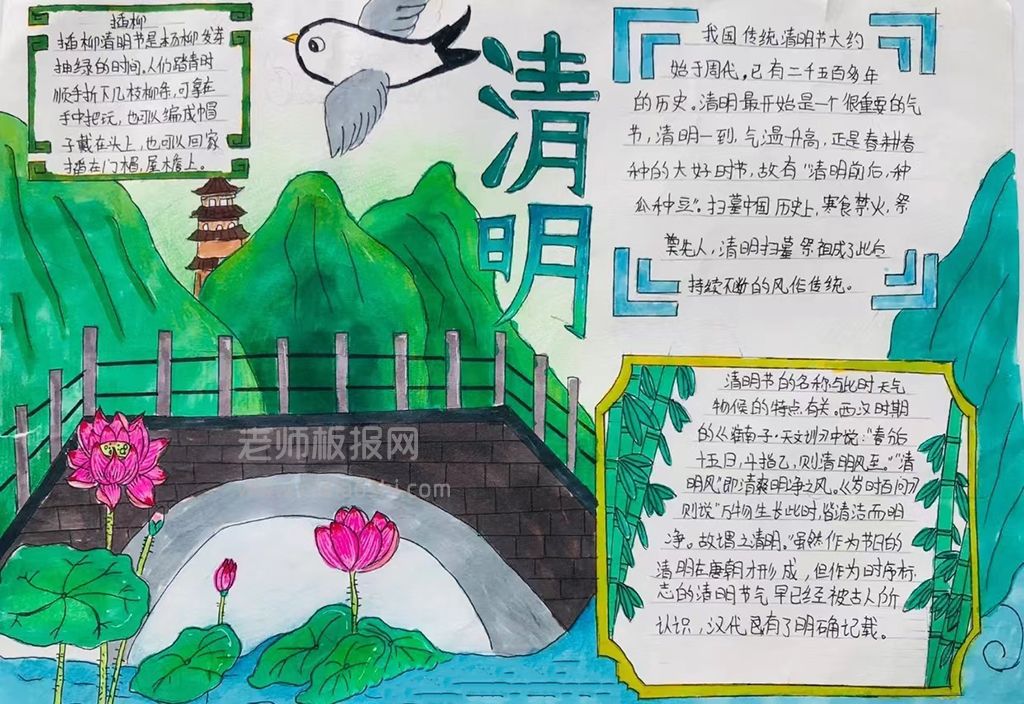 插柳
插柳清明节是杨柳发芽
抽绿的时间,人们踏青时
顺手折下几枝柳条,可拿在
手中把玩,也可以编成帽
子戴在头上,也可以回家
插在门楣,屋檐上。
清明
我国传统清明节大约
始于周代,已有二千五百多年
的历史。清明最开始是一个很重要的气
节,清明一到,气温升高,正是春耕春
种的大好时节,故有"清明前后,种
瓜种豆"。扫墓中国历史上,寒食禁火,祭
奠先人,清明扫墓祭祖成了此后
持续不断的风俗传统。
清明节的名称与此时天气
物候的特点有关。西汉时期
的《淮南子·天文训》中说:"春分后
十五日,斗指乙,则清明风至。""清
明风"即清爽明净之风。《岁时百问》
则说"万物生长此时,皆清洁而明
净。故谓之清明。"虽然作为节日的
清明在唐朝才形成,但作为时序标
志的清明节气早已经被古人所
认识,汉代已有了明确记载。
老师板报网